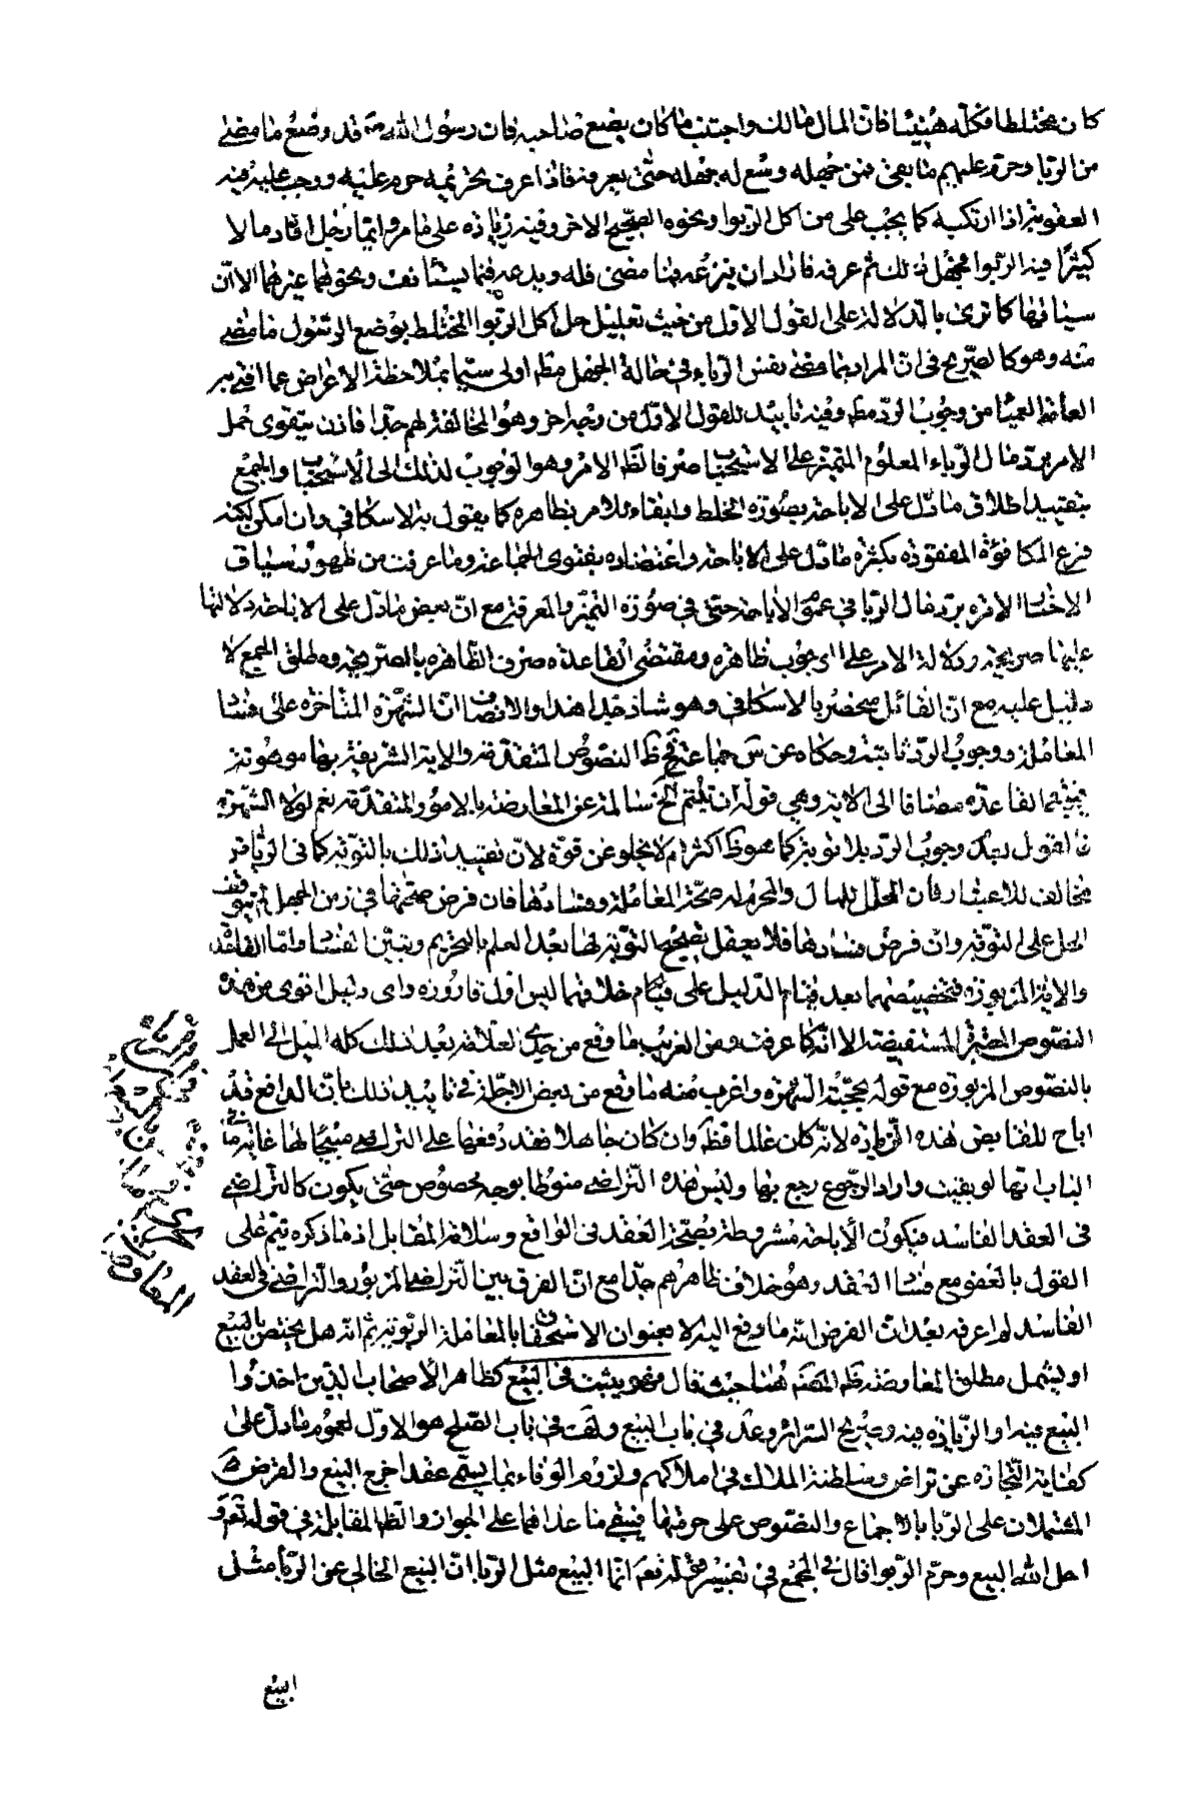 كان مختلطا فكله هنيئا فان المال مالك واجتنب ما كان يصنع صاحبه فان رسول الله ص قد وضع ما مضى
من الربا وحرم عليهم ما بقى فمن جهله وسع له جهله حتى يعرفه فاذا عرف تحريمه حرم عليه ووجب عليه فيه
العقوبة اذا ارتكبه كما يجب على من اكل الربوا ونحوه الصحيح الاخر وفيه زيادة على ما مر وايما رجل افاد مالا
كثيرا فيه الربوا فجهل ذلك ثم عرفه فاراد ان ينزعه فما مضى فله ويدعه فيما يستانف ونحوهما غيرهما الا ان
سياقها كما ترى بالدلالة على القول الاول من حيث تعليل حل اكل الربوا المختلط بوضع الرسول ما مضى
منه وهو كالصريح فى ان المراد بما مضى نفس الرباء فى حالة الجهل مط اولى سيما بملاحظة الاعراض عما افتى به
العامة العمياء من وجوب الرد مط وفيه تاييد للقول الاول من وجه اخر وهو المخالفة لهم جدا فاذن يتقوى حمل
الامر برد مال الرباء المعلوم المتميز على الاستحباب صرفا لظ الامر وهو الوجوب لذلك الى الاستحباب والجمع
بتقييد اطلاق ما دل على الاباحة بصورة الخلط وابقاء الامر بظاهره كما يقول به الاسكافى وان امكن لكنه
فرع المكافؤة المفقودة بكثرة ما دل على الاباحة واعتضاده بفتوى الجماعة وما عرفت من ظهور سياق
الاخبار الامرة برد مال الربا فى عموم الاباحة حتى فى صورة التميز والمعرفة مع ان بعض ما دل على الاباحة دلالتها
عليها صريحة ودلالة الامر على الوجوب ظاهرة ومقتضى القاعدة صرف الظاهرة بالصريحة ومطلق الجمع لا
دليل عليه مع ان القائل منحصر بالاسكافى وهو شاذ جدا هذا والانصاف ان الشهرة المتاخرة على فساد
المعاملة ووجوب الرد ثابتة وحكاه عن جماعة النصوص المتقدمة والاية الشريفة بها موهونة
القاعدة مضافا الى الاية وهى قوله ان تبتم سالمة عن المعارضة بالامور المتقدمة نعم لولا الشهرة
فالقول بعدم وجوب الرد بلا توبة كما هو ظ اكثرهم لا يخلو عن قوة لان تقييد ذلك بالتوبة كما فى الرياض
مخالف للاعتبار فان المحلل للمال والمحرم له صحة المعاملة وفسادها فان فرض صحتها فى زمن الجهل لم يتوقف
الحل على التوبة وان فرض فسادها فلا يعقل تصحيح التوبة لها بعد العلم بالتحريم وتبين الفساد واما القاعدة
والاية المزبورة فتخصيصهما بعد قيام الدليل على قيام خلافهما ليس اول قارورة واى دليل اقوى من هذه
النصوص المعتبرة المستفيضة الا انه كما عرفت ومن الغريب ما وقع من جدى العلامة بعد ذلك كله الميل الى العمل
بالنصوص المزبورة مع قوله بحجية الشهرة واغرب منه ما وقع من بعض الاجلة فى تاييد ذلك بان الدافع قد
اباح للقابض هذه الزيادة لانه كان عالما فظ وان كان جاهلا فقد دفعها على التراضى مبيحا لها غاية ما فى
الباب انها لو بقيت واراد الرجوع رجع بها وليس هذه التراضى منوطا بوجه مخصوص حتى يكون كالتراضى
فى العقد الفاسد فيكون الاباحة مشروطة بصحة العقد فى الواقع وسلامة المقابل اذ ما ذكره يتم على
القول بالعفو مع فساد العقد وهو خلاف ظاهرهم جدا مع ان الفرق بين التراضى المزبور والتراضى فى العقد
الفاسد لم اعرفه بعد ان الفرض انه ما دفع اليه الا بعنوان الاستحقاق بالمعاملة الربوية ثم انه هل يختص بالبيع
او يشمل مطلق المعاوضة ظ المصنف هنا حيث قال وهو يثبت فى البيع كظاهر الاصحاب الذين اخذوا
البيع فيه او الزيادة فيه وصريح السرائر وعد فى باب البيع ولف فى باب الصلح هو الاول لعموم ما دل على
كفاية التجارة عن تراض وسلطنة الملاك فى املاكهم ولزوم الوفاء بما يسمى عقدا خرج البيع والقرض
المشتملان على الربا بالاجماع والنصوص على حرمتها فيبقى ما عداهما على الجواز والظ المقابلة فى قوله تع و
احل الله البيع وحرم الربوا قال فى المجمع فى تفسير قوله تع انما البيع مثل الربا ان البيع الخالى عن الربا مثل
البيع